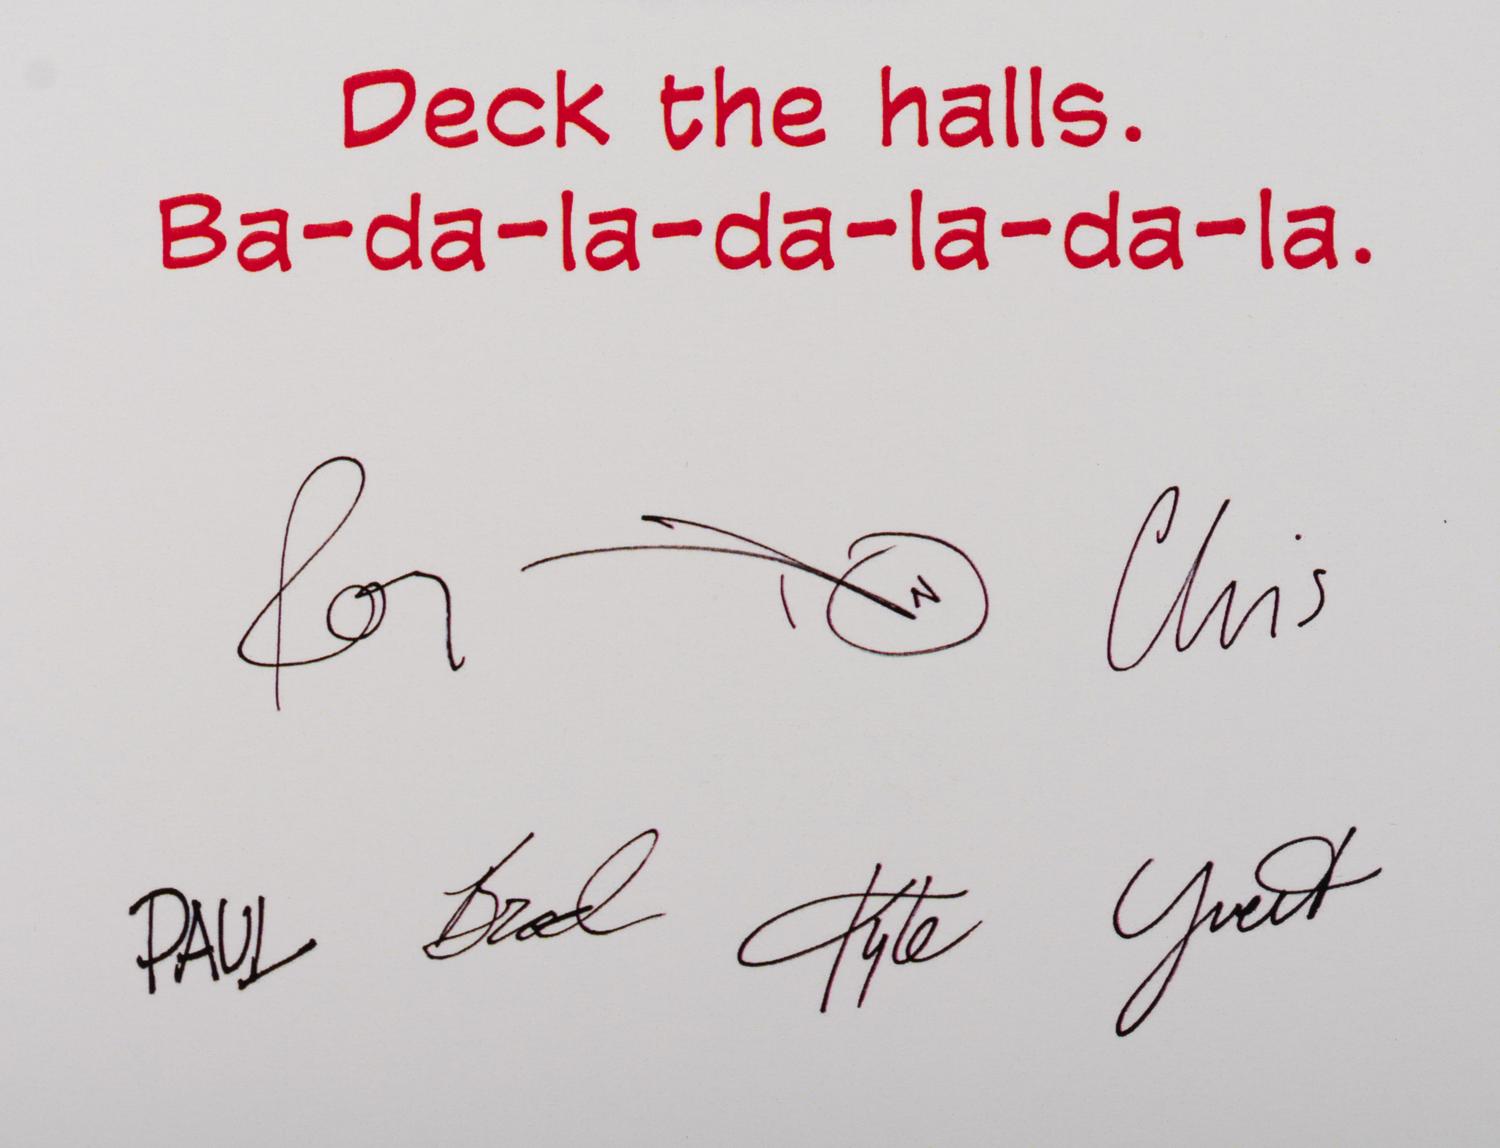 Deck the halls.
Ba-da-la-da-la-da-la.
Ron Chris
PAUL Brad Kyle Yvette